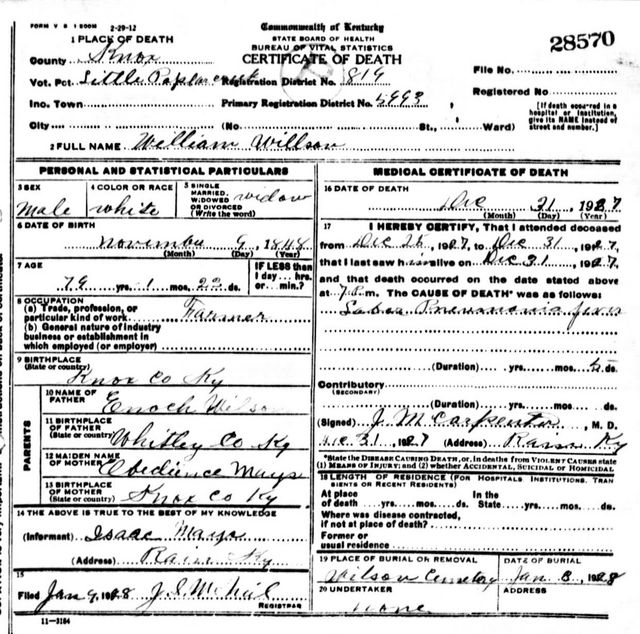 FORM V S 1 500M 2-29-12
Commonwealth of Kentucky
STATE BOARD OF HEALTH
BUREAU OF VITAL STATISTICS
CERTIFICATE OF DEATH
28570
1 PLACE OF DEATH
County Knox
Vot. Pct. Little Poplar Creek Registration District No. 819
Inc. Town Primary Registration District No. 5993
City (No. St., Ward)
File No.
Registered No.
[If death occurred in a hospital or institution, give its NAME instead of street and number.]
2 FULL NAME William Willson
PERSONAL AND STATISTICAL PARTICULARS
3 SEX Male
4 COLOR OR RACE white
5 SINGLE MARRIED, WIDOWED OR DIVORCED (Write the word) widow
6 DATE OF BIRTH
Novimber 9, 1848
(Month) (Day) (Year)
7 AGE
79 yrs. 1 mos. 22 ds.
IF LESS than 1 day... hrs. or min.?
8 OCCUPATION
(a) Trade, profession, or particular kind of work Farmer
(b) General nature of industry business or establishment in which employed (or employer)
9 BIRTHPLACE (State or country) Knox Co Ky
PARENTS
10 NAME OF FATHER Enoch Wilson
11 BIRTHPLACE OF FATHER (State or country) Whitley Co Ky
12 MAIDEN NAME OF MOTHER Obedience Mays
13 BIRTHPLACE OF MOTHER (State or country) Knox Co Ky
14 THE ABOVE IS TRUE TO THE BEST OF MY KNOWLEDGE
(Informant) Isaac Mays
(Address) Rain Ky
15
Filed Jan 9, 1928
REGISTRAR
11-3184
MEDICAL CERTIFICATE OF DEATH
16 DATE OF DEATH
Dec 31, 1927
(Month) (Day) (Year)
17 I HEREBY CERTIFY, That I attended deceased
from Dec 26, 1927, to Dec 31, 1927,
that I last saw him alive on Dec 31, 1927,
and that death occurred on the date stated above
at 7 P.m. The CAUSE OF DEATH* was as follows:
Lobar Pneumonia
(Duration) yrs. mos. 5 ds.
Contributory
(SECONDARY)
(Duration) yrs. mos. ds.
(Signed) J. M Carpenter, M. D.
31, 1927 (Address) Rain Ky
*State the DISEASE CAUSING DEATH, or, in deaths from VIOLENT CAUSES state
(1) MEANS OF INJURY; and (2) whether ACCIDENTAL, SUICIDAL or HOMICIDAL
18 LENGTH OF RESIDENCE (FOR HOSPITALS, INSTITUTIONS, TRANSIENTS OR RECENT RESIDENTS)
At place of death yrs. mos. ds. In the State yrs. mos. ds.
Where was disease contracted, if not at place of death?
Former or usual residence
19 PLACE OF BURIAL OR REMOVAL Wilson Cemetery
DATE OF BURIAL Jan 3, 1928
20 UNDERTAKER none
ADDRESS